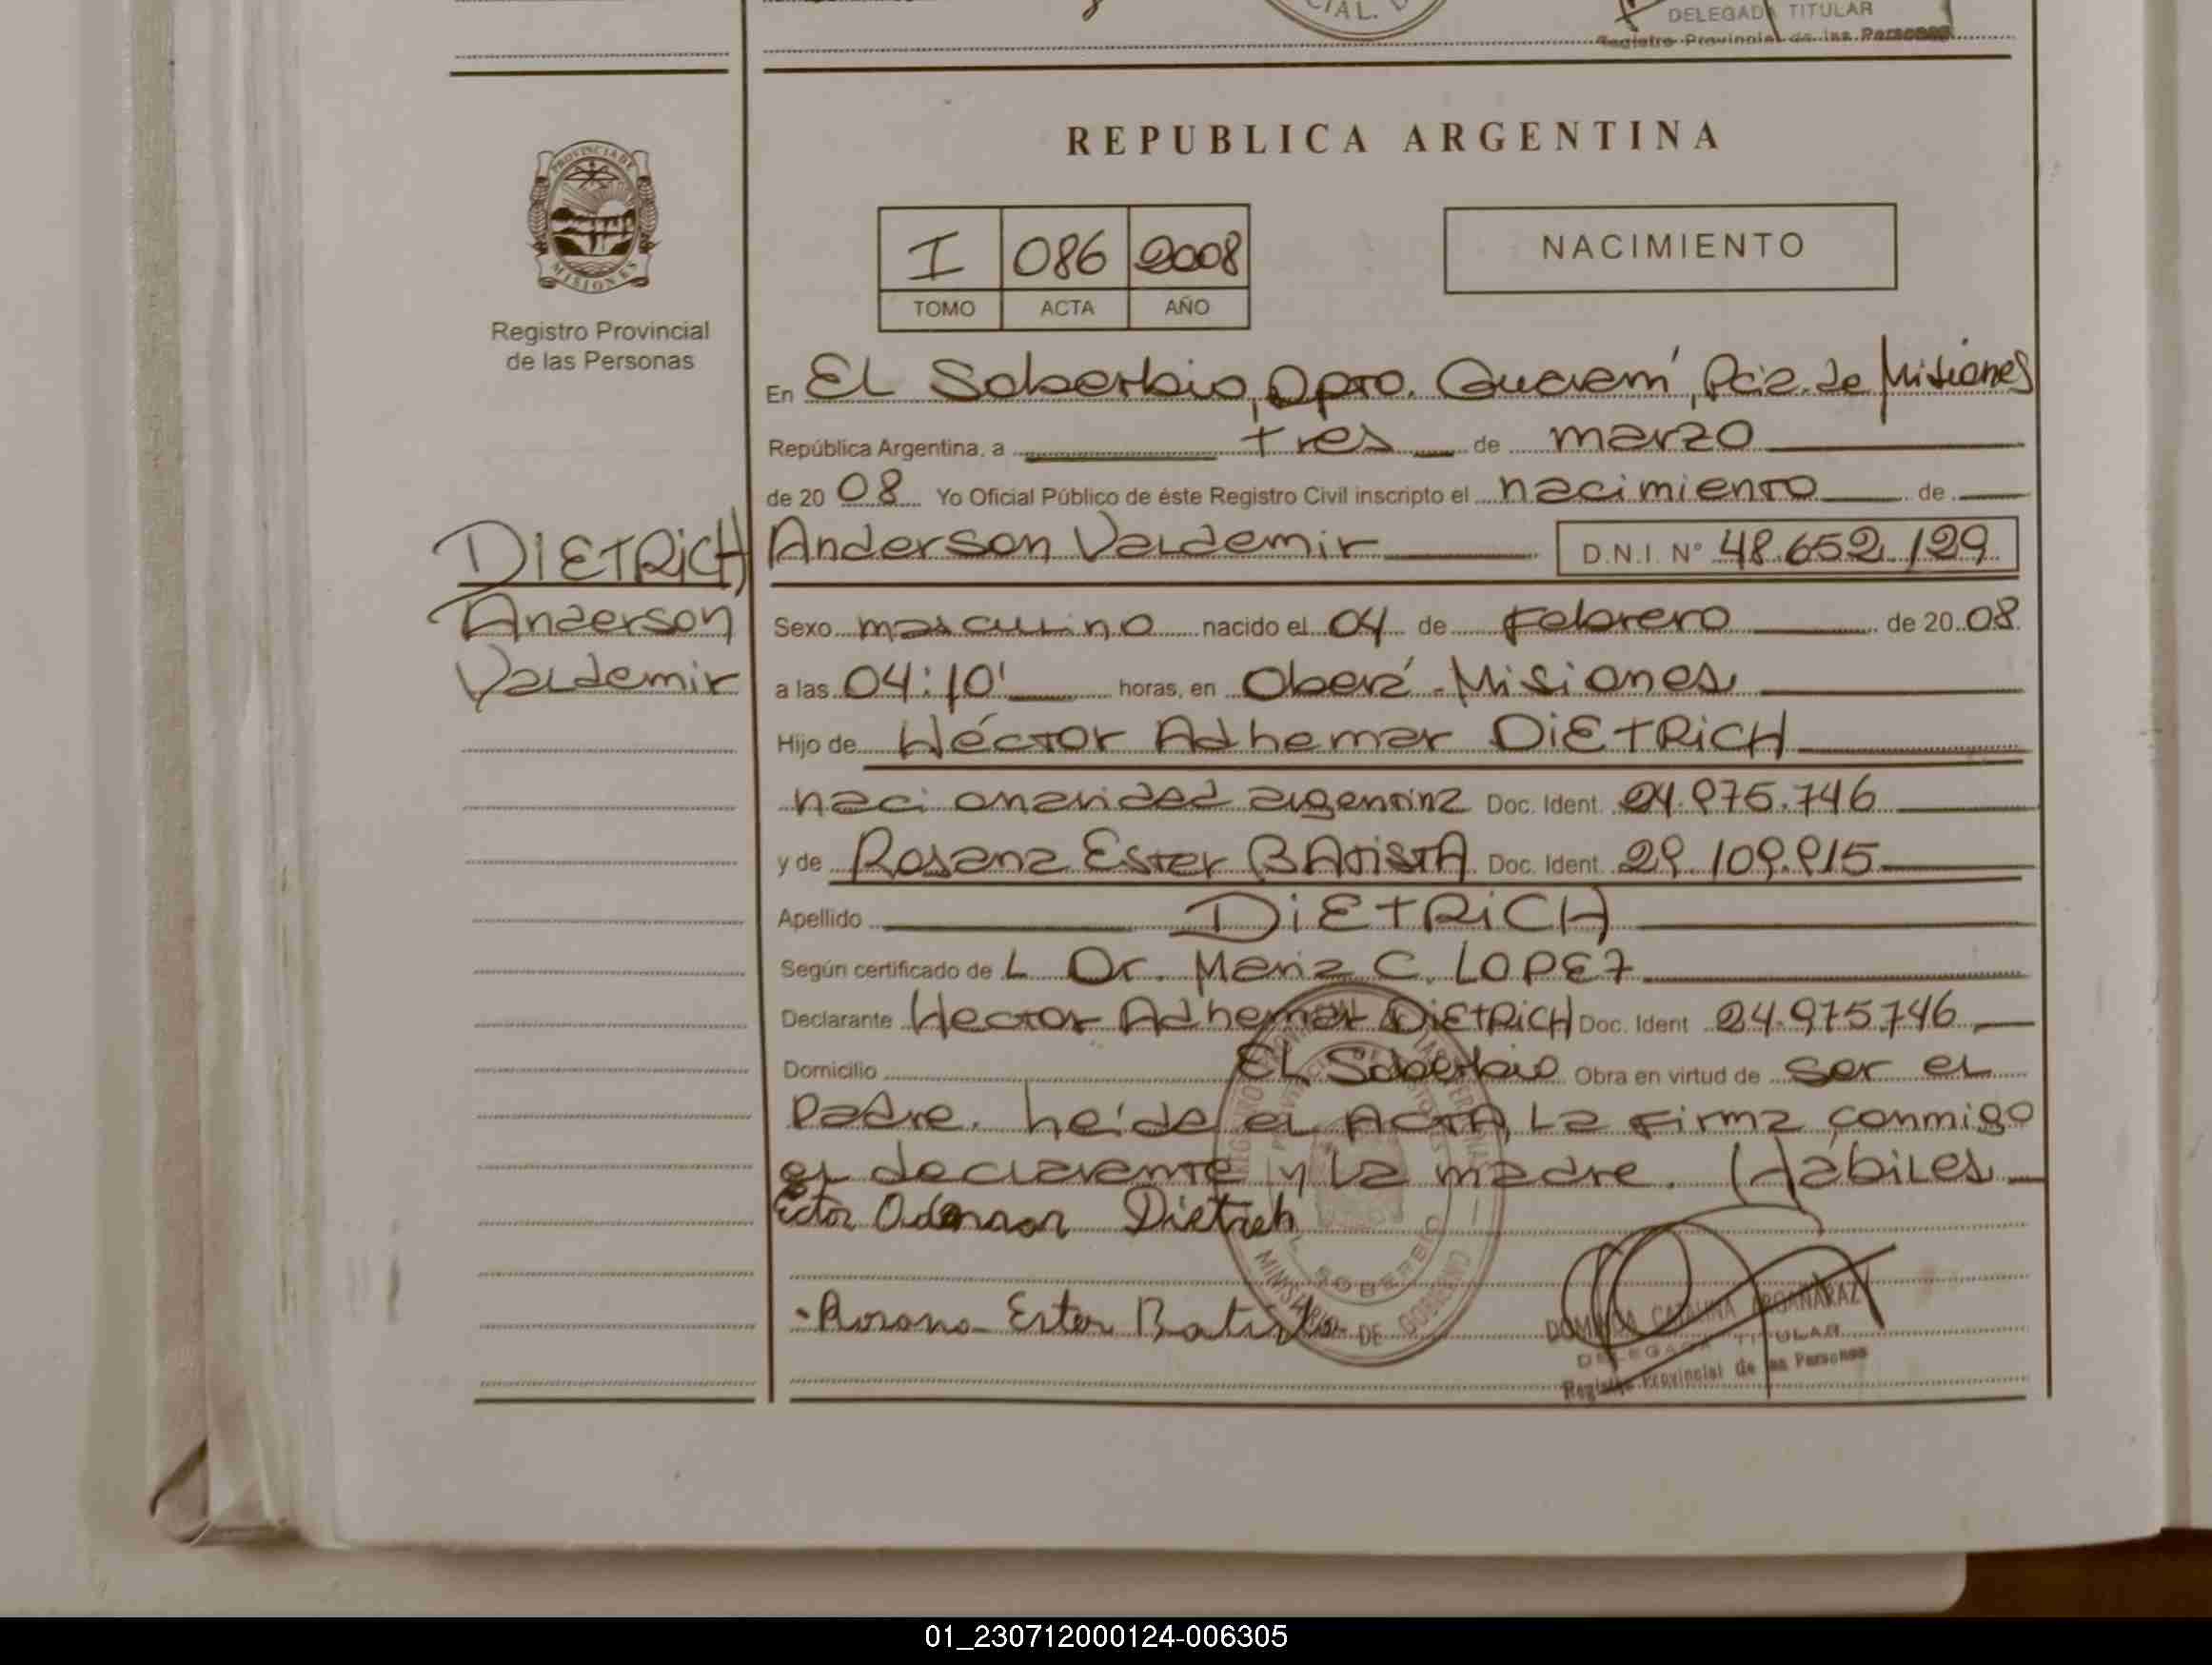 CIAL.
DELEGADA TITULAR
Registro Provincial de las Personas
REPUBLICA ARGENTINA
PROVINCIA DE
MISIONES
I 086 2008
TOMO ACTA AÑO
NACIMIENTO
Registro Provincial
de las Personas
En EL Soberbio, Dpto. Guaraní, Pcia. de Misiones
República Argentina, a tres de marzo
de 20 08 Yo Oficial Público de éste Registro Civil inscripto el nacimiento de
DIETRICH
Anderson
Valdemir
Anderson Valdemir D.N.I. N° 48.652.129
Sexo masculino nacido el 04 de Febrero de 20 08
a las 04:10' horas, en Oberá - Misiones
Hijo de Héctor Adhemar DIETRICH
nacionalidad argentina Doc. Ident. 24.975.746
y de Rosana Ester BATISTA Doc. Ident. 29.109.915
Apellido DIETRICH
Según certificado de L Dr. Maria C. LOPEZ
Declarante Hector Adhemar DIETRICH Doc. Ident 24.975.746
Domicilio EL Soberbio Obra en virtud de ser el
Padre. heída el ACTA, La firma conmigo
el declarante y La madre. Hábiles
Ector Odemar Dietrich
Rosana Ester Batista
SOBERBIO
MINISTERIO DE GOBIERNO
DOMINGA CATALINA ARGAÑARAZ
DELEGADA TITULAR
Registro Provincial de las Personas
01_230712000124-006305